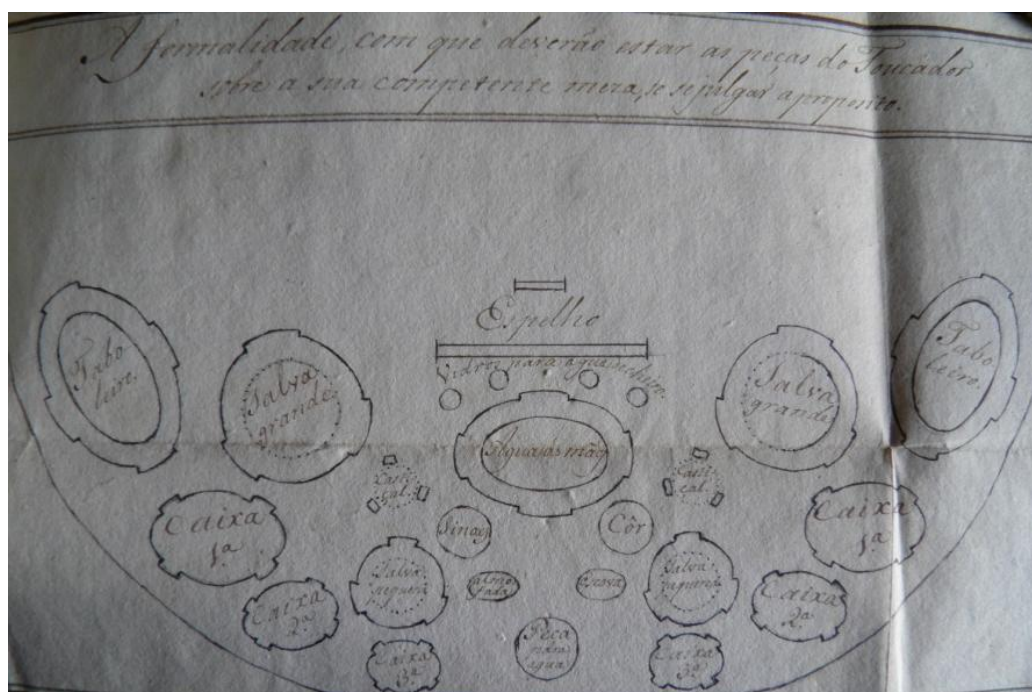 A formalidade, com que deverão estar as peças do Toucador
sobre a sua competente meza, se se julgar a proposito.
Espelho
Vidros para agua de cheiro
Tabo
leiro.
Salva
grande
Salva
grande
Tabo
leiro.
Agua ás mãos
Casti
çal.
Casti
çal.
Caixa
1ª
Sinaes
Côr
Caixa
1ª
Salva
pequena
Almo
fada
Escova
Salva
pequena
Caixa
2ª
Caixa
2ª
Peça
para
agua
Caixa
3ª
Caixa
3ª